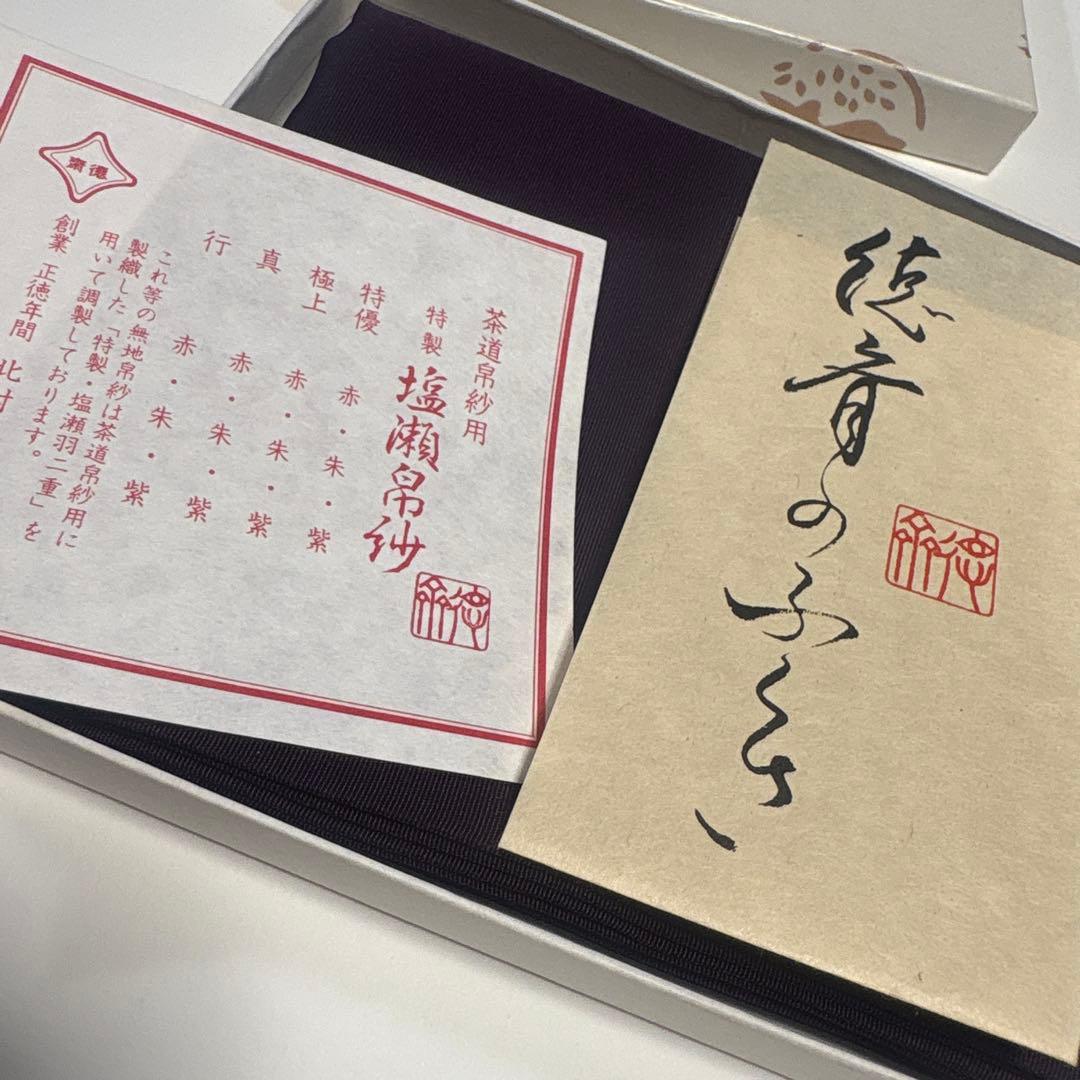 茶道帛紗用
特製 塩瀬帛紗
特優 赤・朱・紫
極上 赤・朱・紫
真 赤・朱・紫
行 赤・朱・紫
これ等の無地帛紗は茶道帛紗用に
製織した「特製・塩瀬羽二重」を
用いて調製しております。
創業 正徳年間 北村
德齋
德斎
徳斎のふくさ
德斎